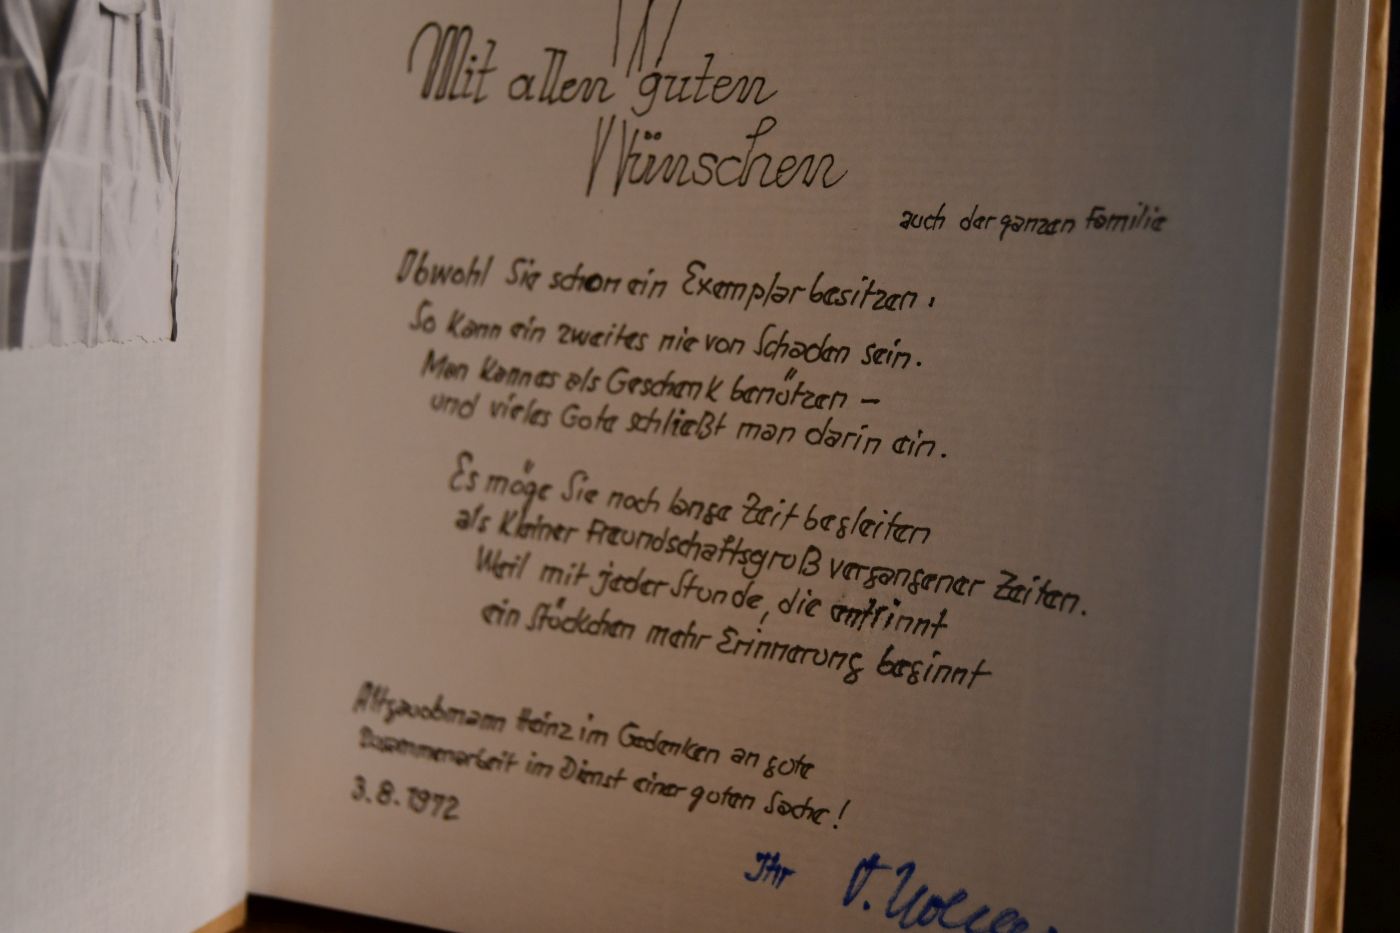 Mit allen guten
Wünschen
auch der ganzen Familie
Obwohl Sie schon ein Exemplar besitzen,
So kann ein zweites nie von Schaden sein.
Man kann es als Geschenk benützen –
und vieles Gute schließt man darin ein.
Es möge Sie noch lange Zeit begleiten
als kleiner Freundschaftsgruß vergangener Zeiten.
Weil mit jeder Stunde, die entrinnt
ein Stückchen mehr Erinnerung beginnt
Altgauobmann Heinz im Gedenken an gute
Zusammenarbeit im Dienst einer guten Sache!
3.8.1972
Ihr